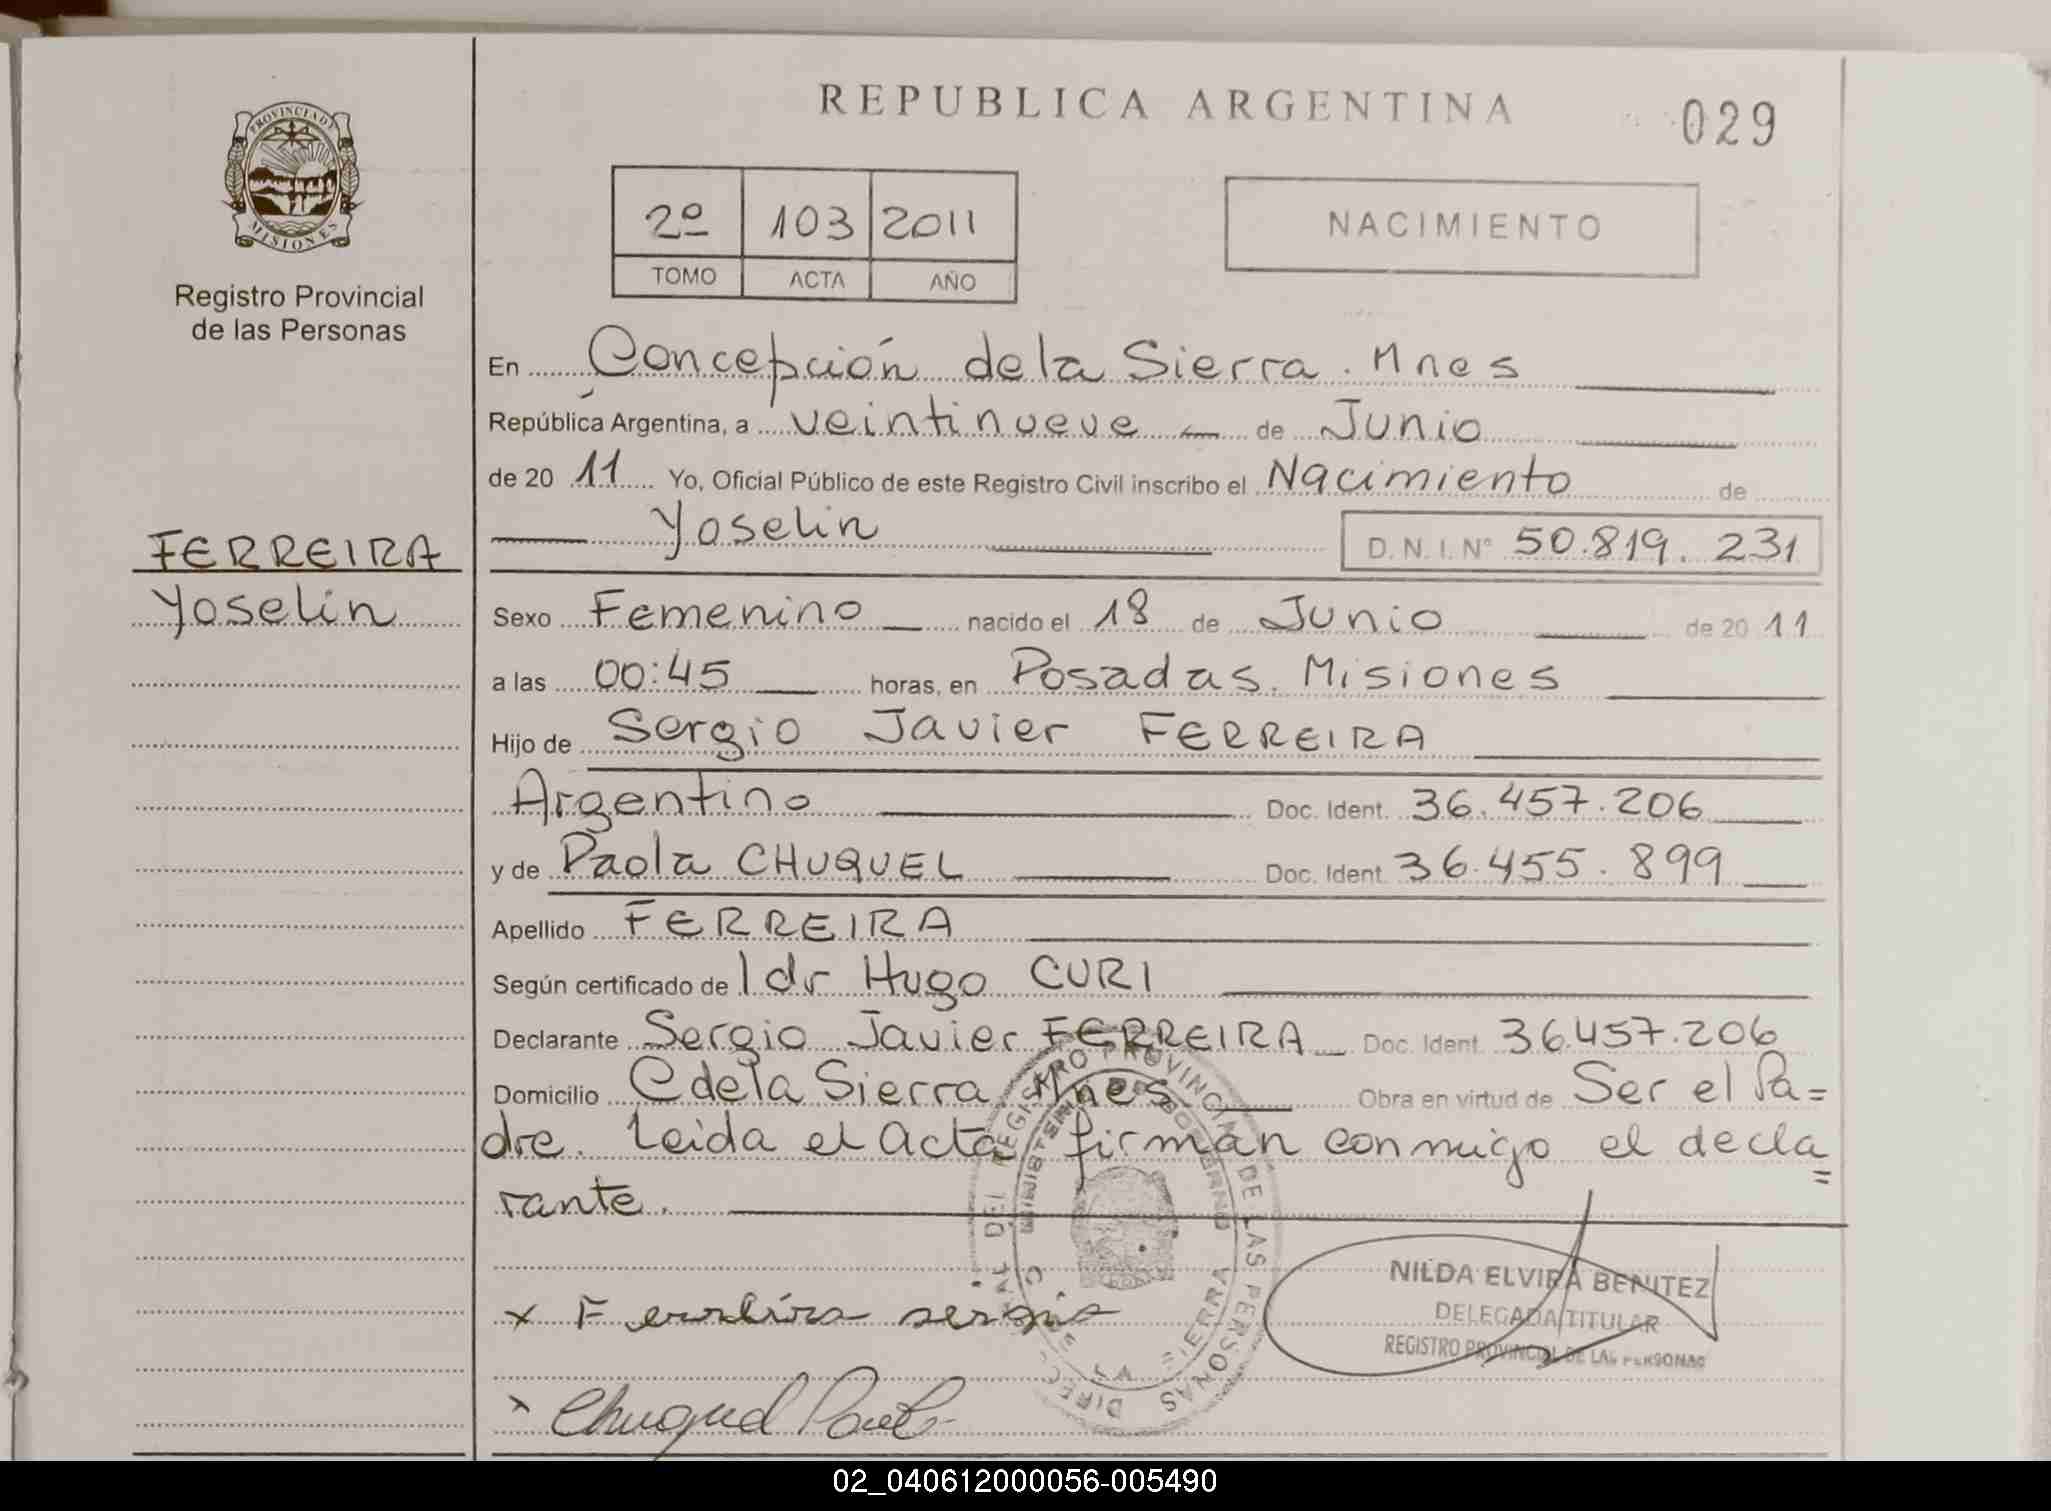 REPUBLICA ARGENTINA
029
PROVINCIA DE
MISIONES
Registro Provincial
de las Personas
2º 103 2011
TOMO ACTA AÑO
NACIMIENTO
En Concepción de la Sierra. Mnes
República Argentina, a veintinueve de Junio
de 20 11 Yo, Oficial Público de este Registro Civil inscribo el Nacimiento de
Yoselin D.N.I. Nº 50.819.231
FERREIRA
Yoselin
Sexo Femenino nacido el 18 de Junio de 20 11
a las 00:45 horas, en Posadas. Misiones
Hijo de Sergio Javier FERREIRA
Argentino Doc. Ident. 36.457.206
y de Paola CHUQUEL Doc. Ident. 36.455.899
Apellido FERREIRA
Según certificado de l dr Hugo CURI
Declarante Sergio Javier FERREIRA Doc. Ident. 36.457.206
Domicilio C de la Sierra Mnes Obra en virtud de Ser el Pa=
dre. Leida el Acta firman conmigo el decla=
rante.
NILDA ELVIRA BENITEZ
DELEGADA TITULAR
REGISTRO PROVINCIAL DE LAS PERSONAS
x Ferreira sergio
x Chuquel Paola
REGISTRO PROVINCIAL DE LAS PERSONAS
02_040612000056-005490